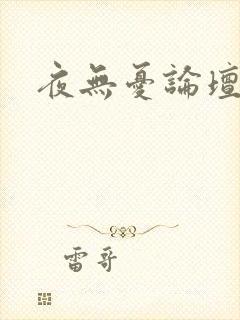 夜無憂論壇
雷哥